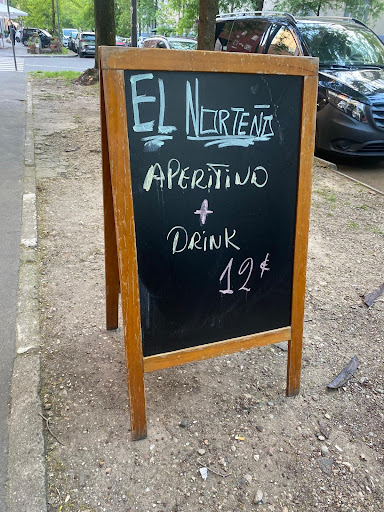 EL NORTEÑO
APERITIVO
+
DRINK
12 €